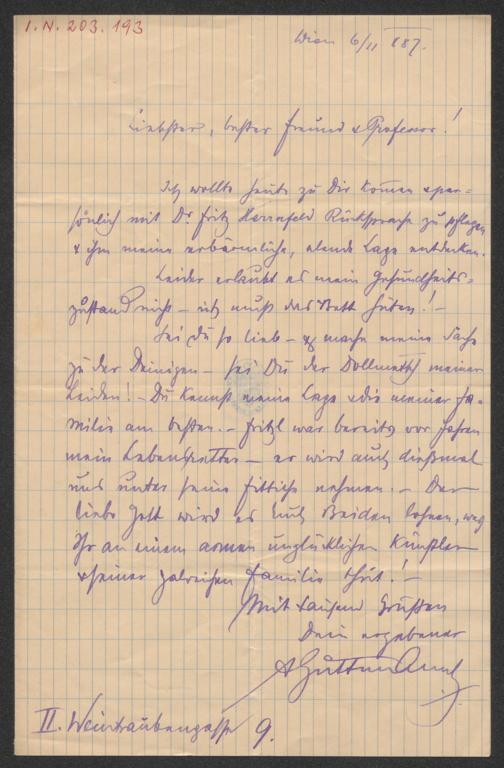 I.N. 203.193
Wien 6/11 887.
Liebster, bester Freund & Professor!
Ich wollte heute zu Dir komen & per=
sönlich mit Dr Fritz Rücksprache zu pflegen
& ihm meine erbärmliche, elende Lage entdecken.
Leider erlaubt es mein Gesundheits=
zustand nicht – ich muß das Bett hüten! –
Sei Du so lieb – & mache meine Sache
zu der Deinigen – sei Du der Dollmetsch meiner
Leiden! – Du kennst meine Lage & die meiner Fa=
milie am besten. – Fritzl war bereits vor Jahren
mein Lebensretter – er wird auch dießmal
uns unter seine Fittiche nehmen. – Der
liebe Gott wird es Euch Beiden lohnen, was
Ihr an einem armen unglücklichen Künstler
& seiner zalreichen Familie thut! –
Mit tausend Grüßen
Dein ergebener
II. Weintraubengasse 9.